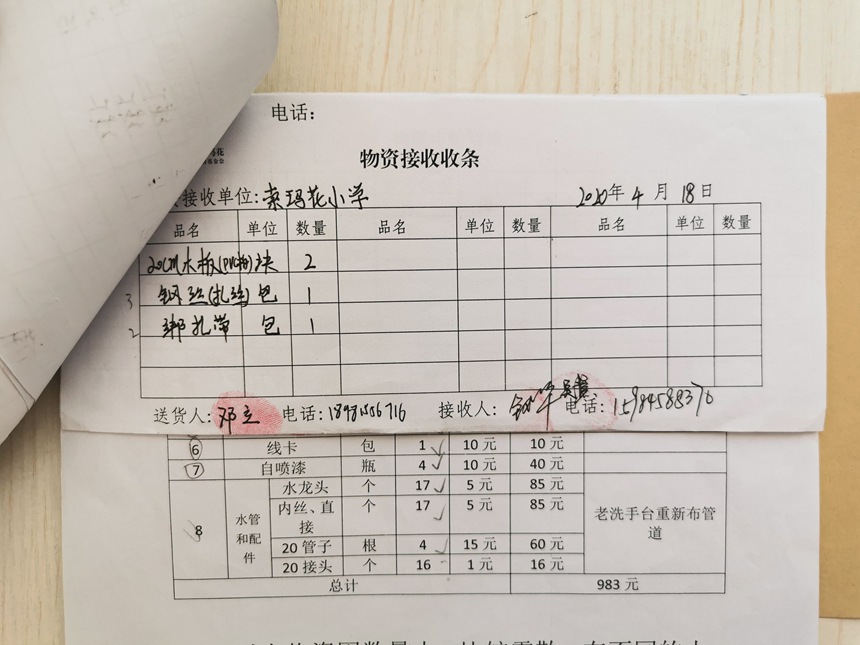 电话：
物资接收收条
接收单位：索玛花小学 2020年4月18日
品名 单位 数量 品名 单位 数量 品名 单位 数量
20CM木板(PVC板) 块 2
3 钢丝(扎丝) 包 1
2 绑扎带 包 1
送货人：邓立 电话：18981556716 接收人： 电话：15984588370
6 线卡 包 1 10元 10元
7 自喷漆 瓶 4 10元 40元
8 水管和配件 水龙头 个 17 5元 85元 老洗手台重新布管道
内丝、直接 个 17 5元 85元
20管子 根 4 15元 60元
20接头 个 16 1元 16元
总计 983元